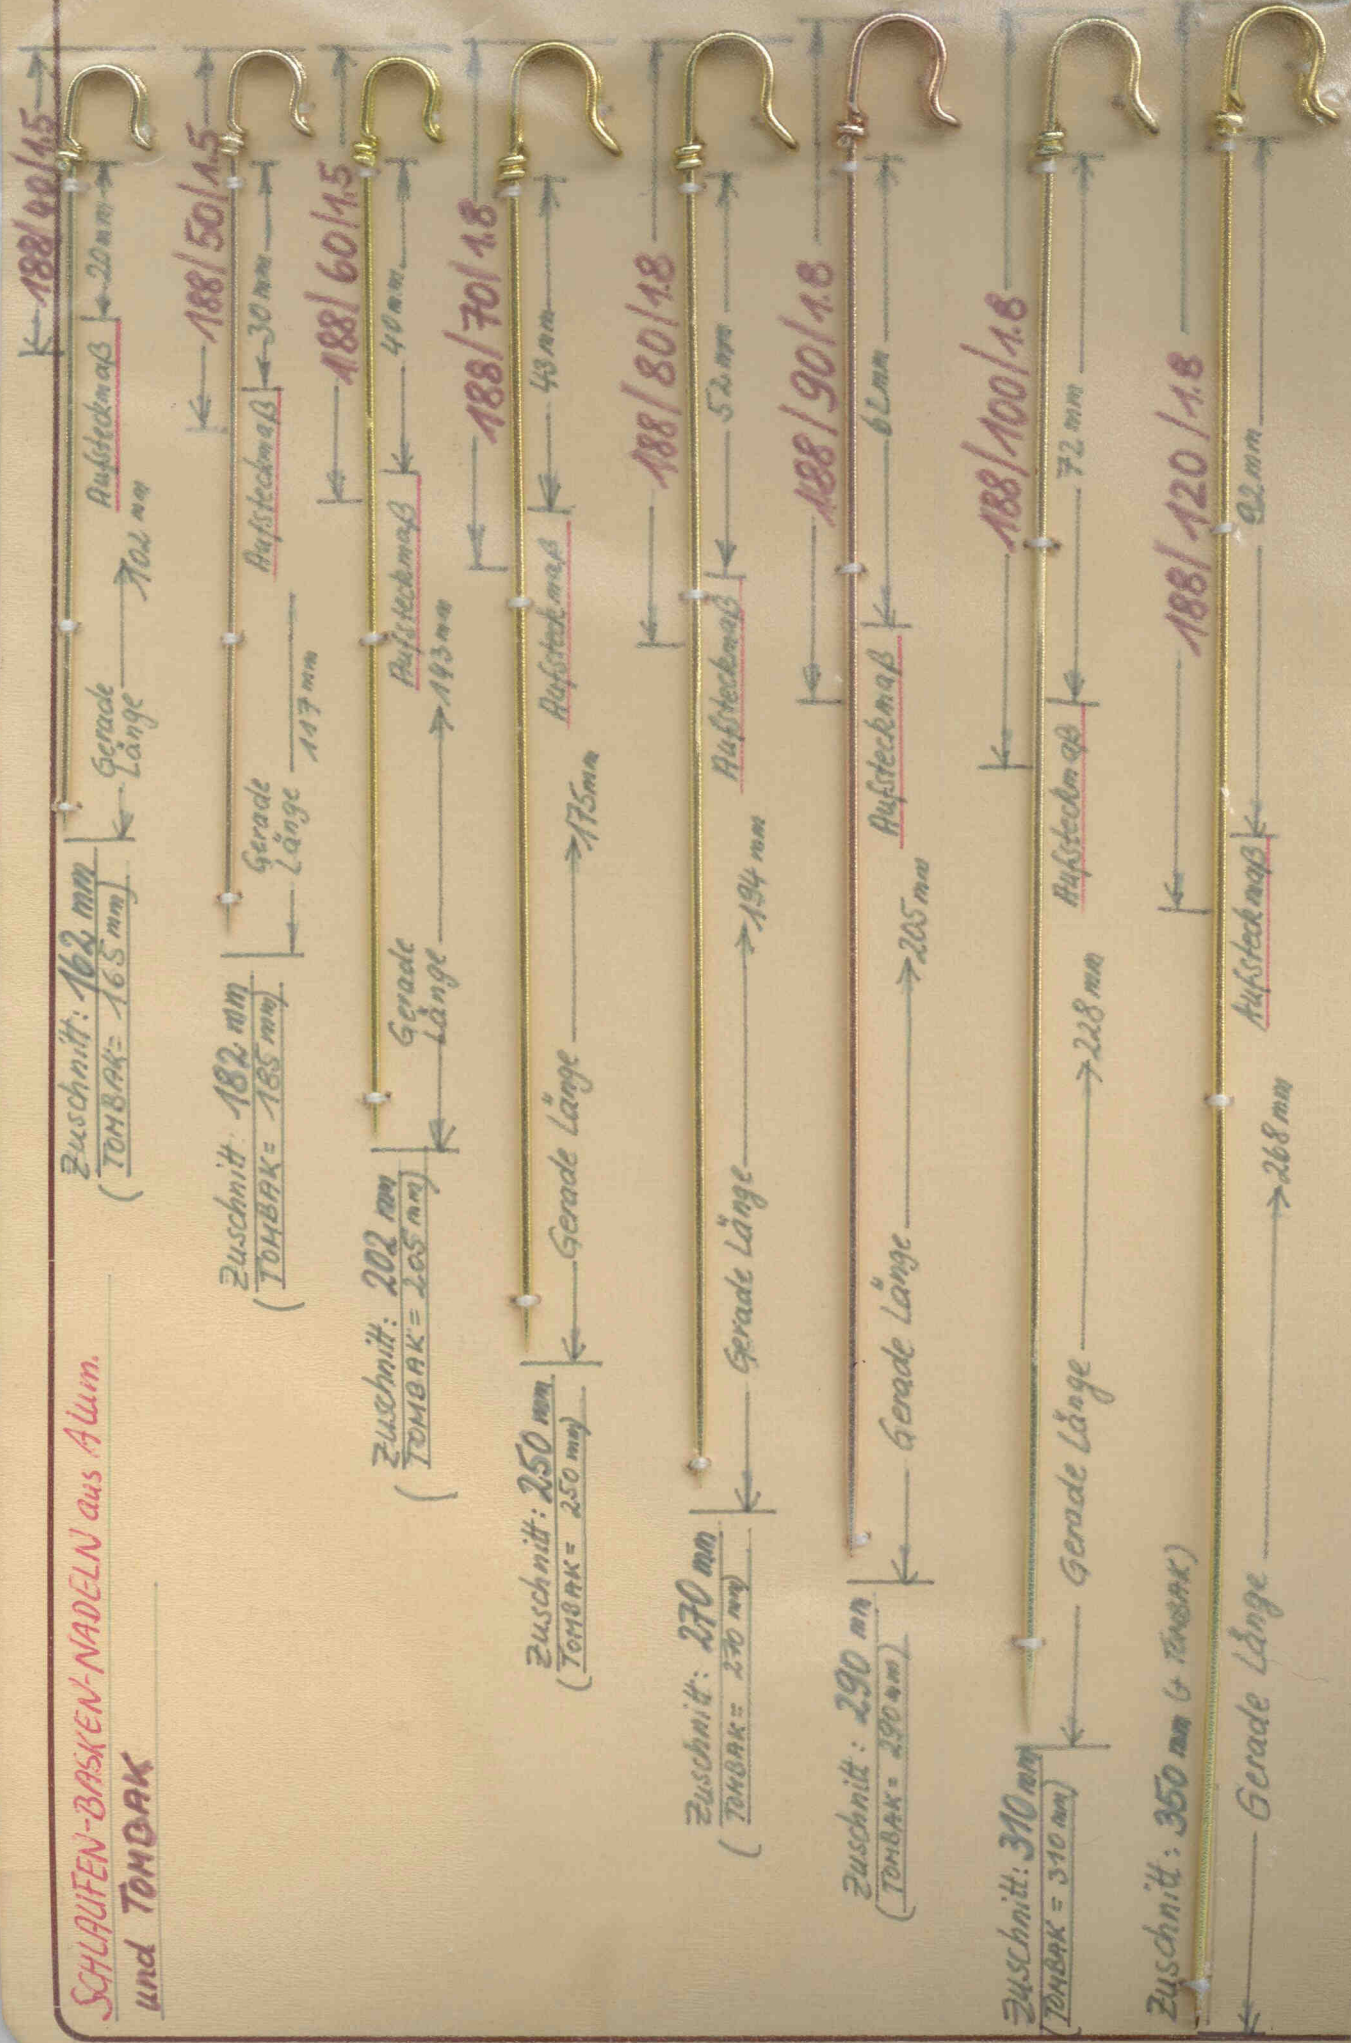 SCHLAUFEN-BASKEN-NADELN aus Alum.
und TOMBAK
188/40/1.5
20mm
Aufsteckmaß
Gerade
Länge
102 mm
Zuschnitt: 162 mm
(TOMBAK= 165 mm)
188/50/1.5
30mm
Aufsteckmaß
Gerade
Länge
117 mm
Zuschnitt: 182 mm
(TOMBAK= 185 mm)
188/60/1.5
40mm
Aufsteckmaß
Gerade
Länge
143 mm
Zuschnitt: 202 mm
(TOMBAK = 205 mm)
188/70/1.8
43 mm
Aufsteckmaß
Gerade Länge
175mm
Zuschnitt: 250 mm
(TOMBAK = 250 mm)
188/80/1.8
52mm
Aufsteckmaß
Gerade Länge
194 mm
Zuschnitt: 270 mm
(TOMBAK = 270 mm)
188/90/1.8
62mm
Aufsteckmaß
Gerade Länge
205mm
Zuschnitt: 290 mm
(TOMBAK = 290mm)
188/100/1.8
72 mm
Aufsteckmaß
Gerade Länge
228 mm
Zuschnitt: 310 mm
(TOMBAK = 310 mm)
188/120/1.8
92mm
Aufsteckmaß
Gerade Länge
268mm
Zuschnitt: 350 mm (+ TOMBAK)